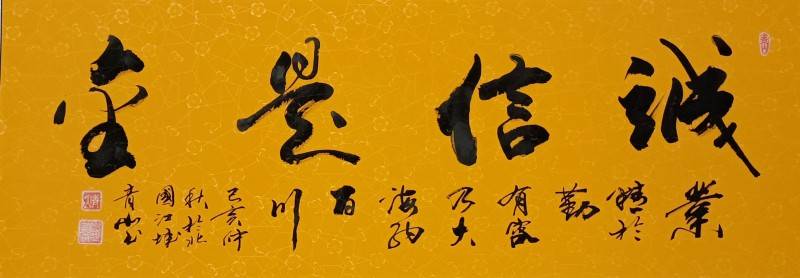 誠信是金
業
精於
勤
有容
乃大
海納
百
川
己亥仲
秋於北
國江城
青山书